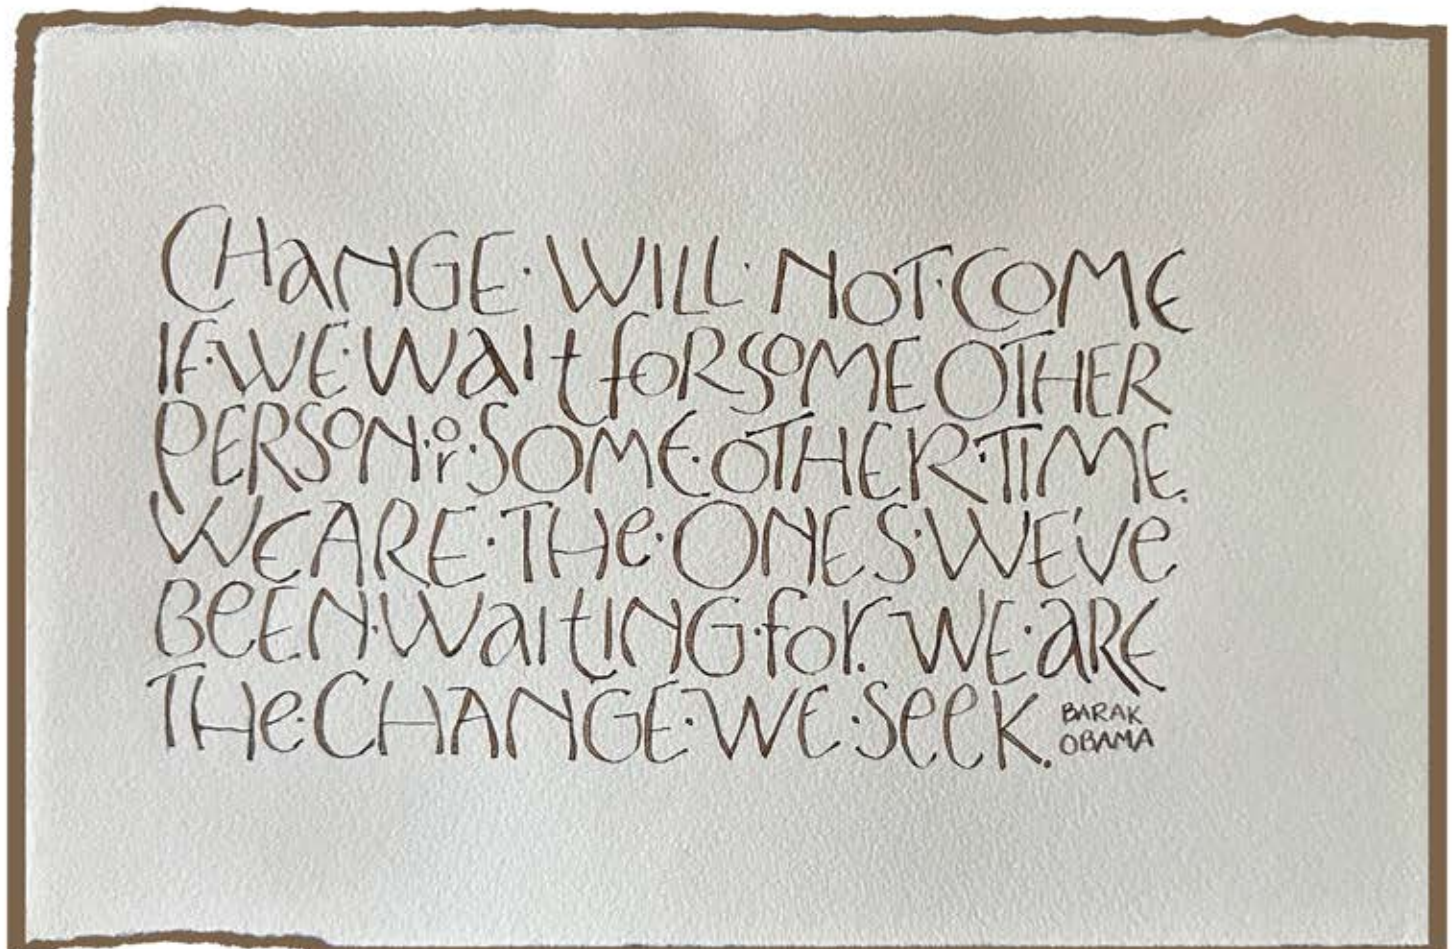 CHaNGE·WILL·NOT·COME
IF·WE·WaIt foR SOME OTHER
PERSON·or·SOME·OTHER·TIME.
WE ARE·THe·ONES·WE'Ve
BeEN·WaItING·for. WE·aRE
THe·CHANGE·WE·SeeK.
BARAK
OBAMA